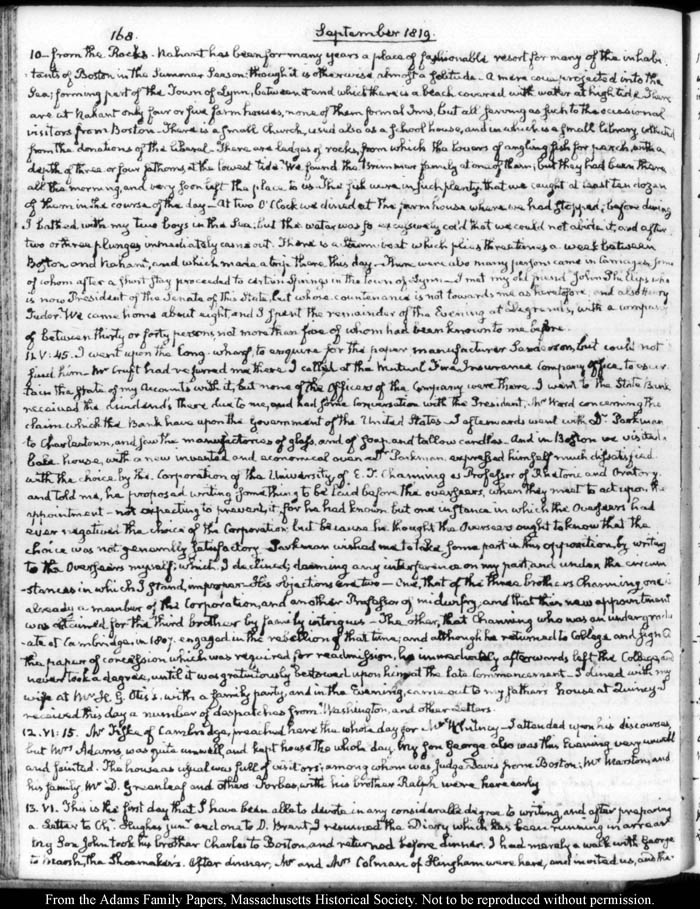 168.
September 1819.
10. from the Rocks. Nahant has been for many years a place of fashionable resort for many of the inhabi-
tants of Boston in the Summer Season: though it is otherwise almost a solitude. A mere cone projected into the
Sea; forming part of the Town of Lynn, between it and which there is a beach covered with water at high tide. There
are at Nahant only four or five farm houses, none of them formal Inns, but all serving as such to the occasional
visitors from Boston. There is a small church, used also as a school house, and in which is a small library, collected
from the donations of the liberal. There are ledges of rocks, from which the lovers of angling fish for perch, with a
depth of three or four fathoms at the lowest tide. We found the Brimmer family at one of them; but they had been there
all the morning, and very soon left the place to us. The fish were in such plenty, that we caught at least ten dozen
of them in the course of the day. At two O'Clock we dined at the farm house where we had stopped; before dining
I bathed with my two boys in the Sea; but the water was so excessively cold that we could not abide it, and after
two or three plunges immediately came out. There is a steam-boat which plies three times a week between
Boston and Nahant, and which made a trip there this day. There were also many persons came in carriages, some
of whom after a short stay proceeded to certain Springs in the town of Lynn. I met my old friend John Phillips who
is now President of the Senate of this State, but whose countenance is not towards me as heretofore, and also
Tudor. We came home about eight and I spent the remainder of the Evening at Degrand's, with a company
of between thirty or forty persons, not more than five of whom had been known to me before.
11. V: 45. I went upon the long-wharf, to enquire for the paper manufacturer Sanderson, but could not
find him. Mr Cruft had referred me there. I called at the Mutual Fire Insurance Company Office, to ascer-
tain the state of my Accounts with it, but none of the Officers of the Company were there. I went to the State Bank
received the dividends there due to me, and had some conversation with the President, Mr Ward concerning the
claim which the Bank have upon the Government of the United States. I afterwards went with Dr Parkman
to Charlestown, and saw the manufactories of glass, and of soap and tallow candles. And in Boston we visited a
bake house, with a new invented and economical oven. Dr Parkman expressed himself much dissatisfied
with the choice by the Corporation of the University of E. T. Channing as Professor of Rhetoric and Oratory,
and told me, he proposed writing something to be laid before the overseers, when they meet to act upon the
appointment—not expecting to prevent it, for he had known but one instance in which the Overseers had
ever negatived the choice of the Corporation; but because he thought the Overseers ought to know that the
choice was not generally satisfactory. Parkman wished me to take some part in this opposition, by writing
to the Overseers myself; which I declined; deeming any interference on my part, and under the circum-
-stances in which I stand, improper. His objections are two—One, that of the three brothers Channing, one is
already a member of the Corporation, and another Professor of midwifry, and that this new appointment
was obtained for the third brother by family intrigues—The other, that Channing who was an undergradu-
ate at Cambridge, in 1807. engaged in the rebellion of that time; and although he returned to College and signed
the paper of concession which was required for readmission, he immediately afterwards left the College, and
never took a degree, until it was gratuitously bestowed upon him at the late Commencement. I dined with my
wife at Mr H. G. Otis's, with a family party, and in the Evening, came out to my father's house at Quincy. I
received this day a number of despatches from Washington, and other Letters.
12. VI: 15. Mr Fiske of Cambridge, preached here the whole day for Mr Whitney. I attended upon his discourses,
but Mrs Adams, was quite unwell, and kept house the whole day. My Son George also was this Evening very unwell
and fainted. The house as usual was full of visitors; among whom was Judge Davis from Boston; Mr Marston, and
his family. Mr D. Greenleaf and others. Forbes, with his brother Ralph were here early
13. VI. This is the first day that I have been able to devote in any considerable degree to writing, and after preparing
a Letter to Ch. Hughes junr and one to D. Brent, I resumed the Diary which has been running in arrear
My Son John took his brother Charles to Boston, and returned before dinner. I had merely a walk with George
to Marsh, the Shoemaker's. After dinner, Mr and Mrs Colman of Hingham were here, and invited us, and the
From the Adams Family Papers, Massachusetts Historical Society. Not to be reproduced without permission.